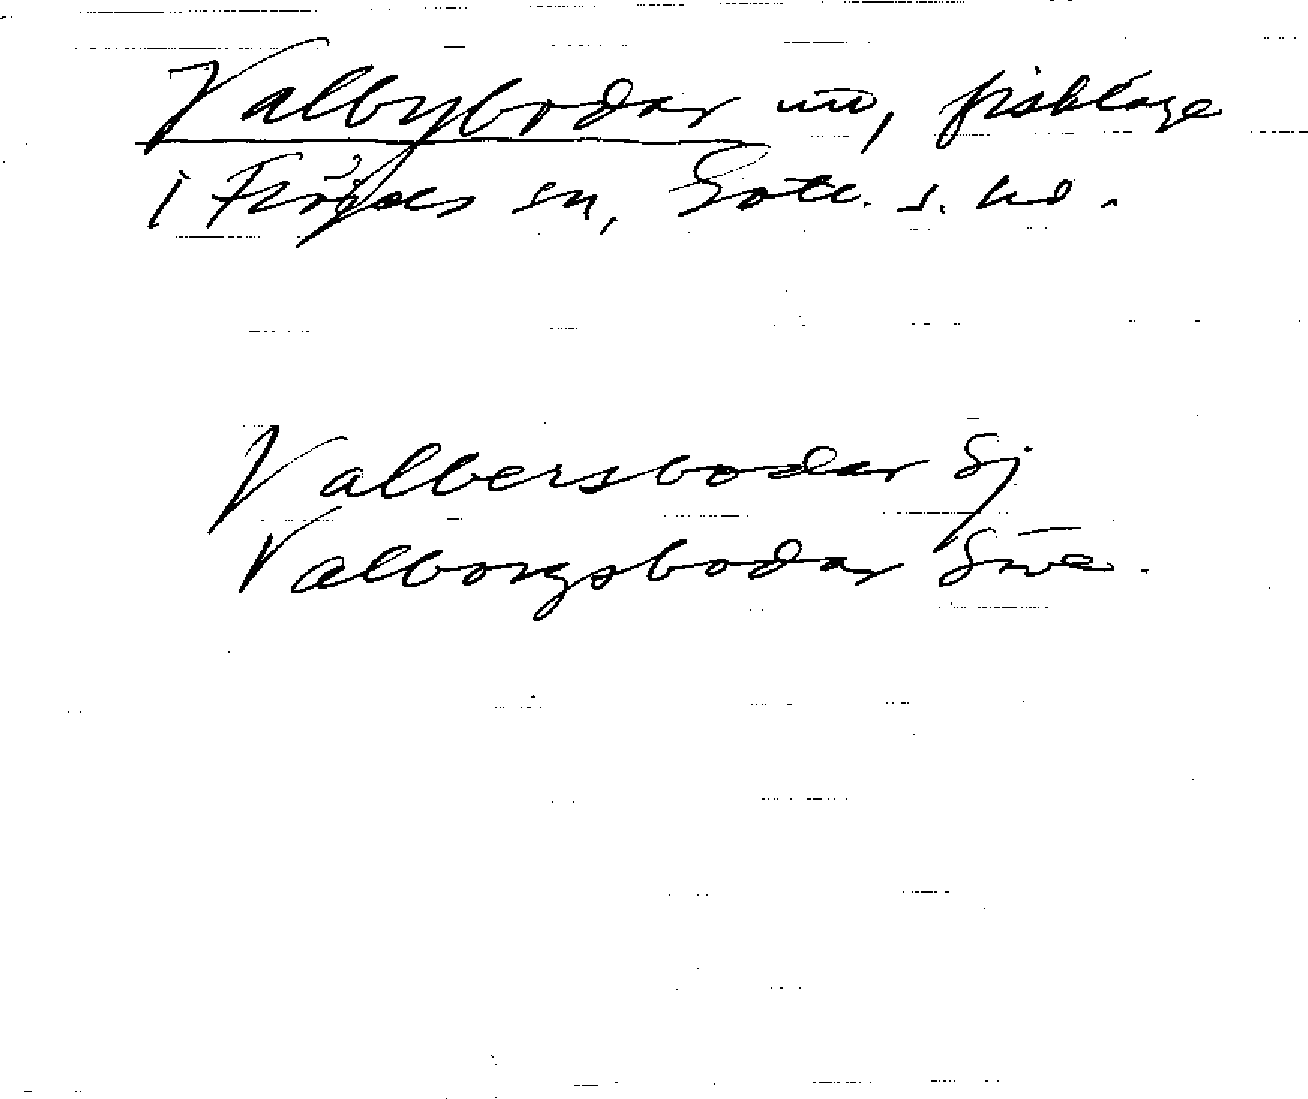 Valbybodar nu, fiskläge
i Fröjels sn, Gotl. s. hd.
Valbersbodar Sj
Valborgsbodar Säve.